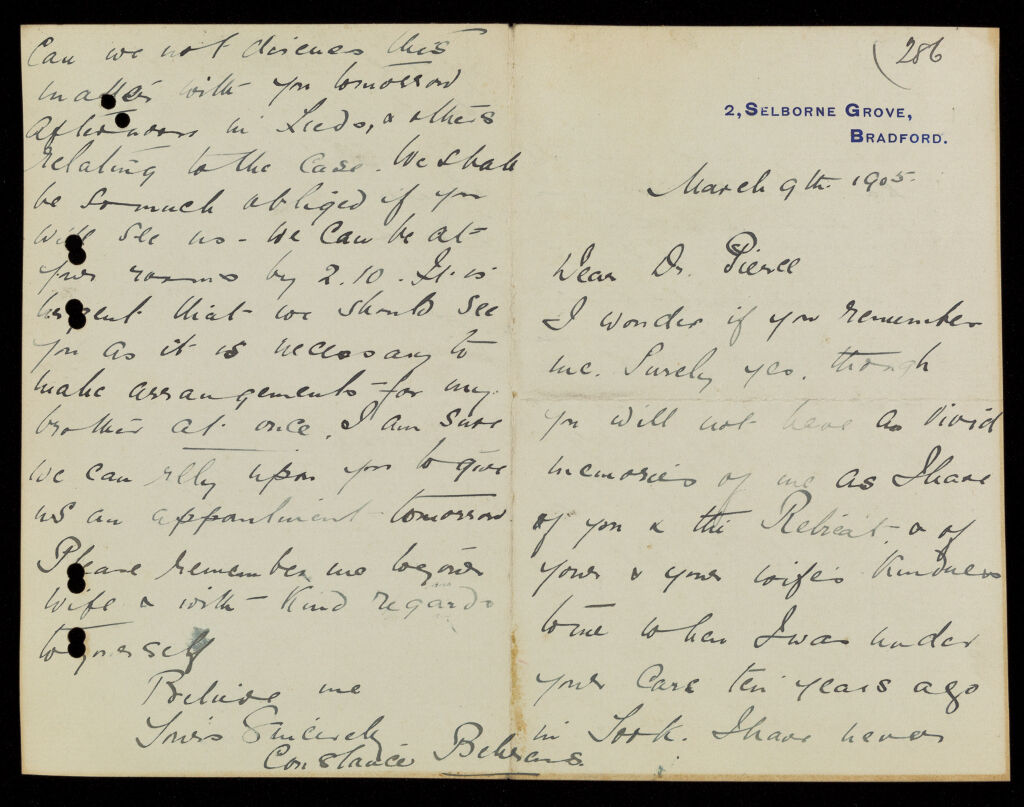 286
2, SELBORNE GROVE,
BRADFORD.
March 9th 1905.
Dear Dr. Pierce
I wonder if you remember
me. Surely yes, though
you will not have as vivid
memories of me as I have
of you & the Retreat, & of
your & your wife's kindness
to me when I was under
your care ten years ago
in York. I have never
Can we not discuss this
matter with you tomorrow
afternoon in Leeds, & others
relating to the case. We shall
be so much obliged if you
will see us - We can be at
your rooms by 2.10. It is
urgent that we should see
you as it is necessary to
make arrangements for my
brother at once. I am sure
we can rely upon you to give
us an appointment tomorrow
Please remember me to your
wife & with kind regards
to yourself
Believe me
Yours Sincerely
Constance Behrens.